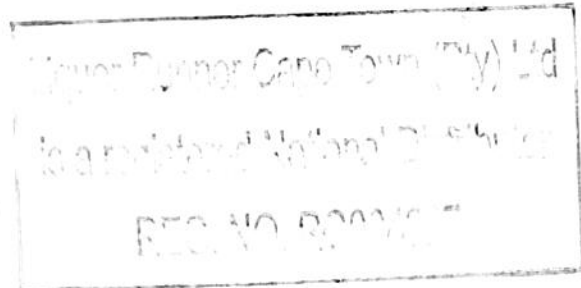 Liquor Runner Cape Town (Pty) Ltd
is a registered National Distributor
REG. NO.